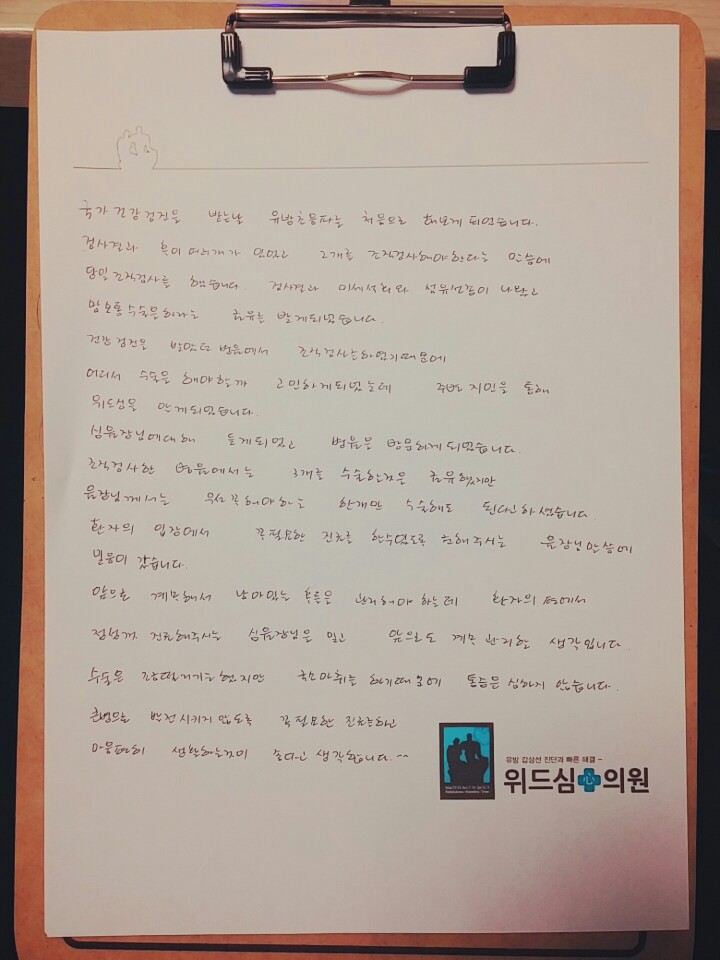 국가 건강검진을 받는날 유방초음파는 처음으로 해보게 되었습니다.
검사결과 혹이 여러개가 있었고 2개를 조직검사해야한다는 말씀에
당일 조직검사를 했습니다. 검사결과 미세석회와 섬유선종이 나왔고
맘모톰수술을하라는 권유를 받게되었습니다.
건강검진을 받았던 병원에서 조직검사는하였기때문에
어디서 수술을 해야할까 고민하게되었는데 주변 지인을 통해
위드심을 알게되었습니다.
심원장님에대해 듣게되었고 병원을 방문하게 되었습니다.
조직검사한 병원에서는 3개를 수술할것을 권유했지만
원장님께서는 우선꼭해야하는 한개만 수술해도 된다고하셨습니다.
환자의 입장에서 꼭필요한 진료를 할수있도록 권해주시는 원장님말씀에
믿음이 갔습니다.
앞으로 계속해서 남아있는 혹들을 관리해야 하는데 환자의 편에서
정성껏 진료해주시는 심원장님을 믿고 앞으로도 계속 관리할 생각입니다.
수술은 조금떨리기는했지만 국소마취를 하기때문에 통증은 심하지 않습니다.
큰병으로 발전시키지 않도록 꼭필요한 진료는하고
마음편히 생활하는것이 좋다고 생각합니다.^^
유방 갑상선 진단과 빠른 해결~
위드심 心 의원